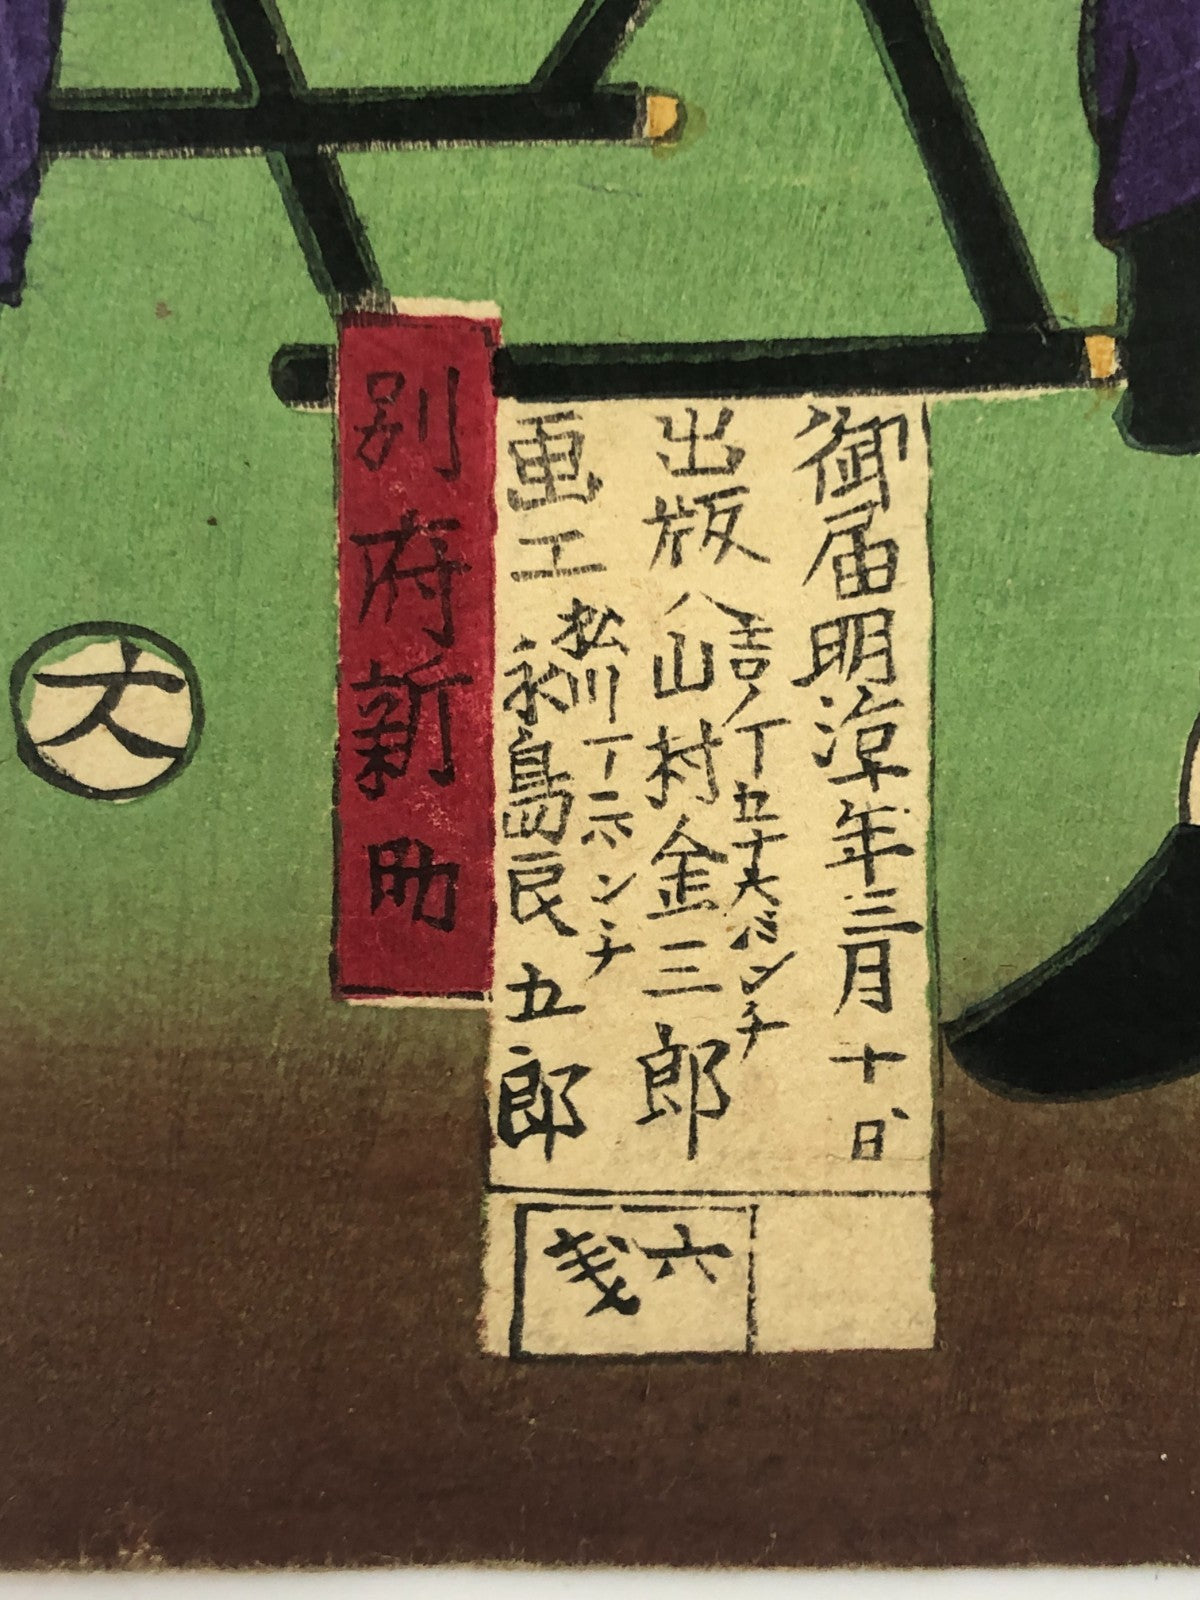 御届明治年三月十日
吉ノ丁五十六バンチ
出版人山村金三郎
松川丁二バンチ
画工永島辰五郎
六戔
別府新助
大